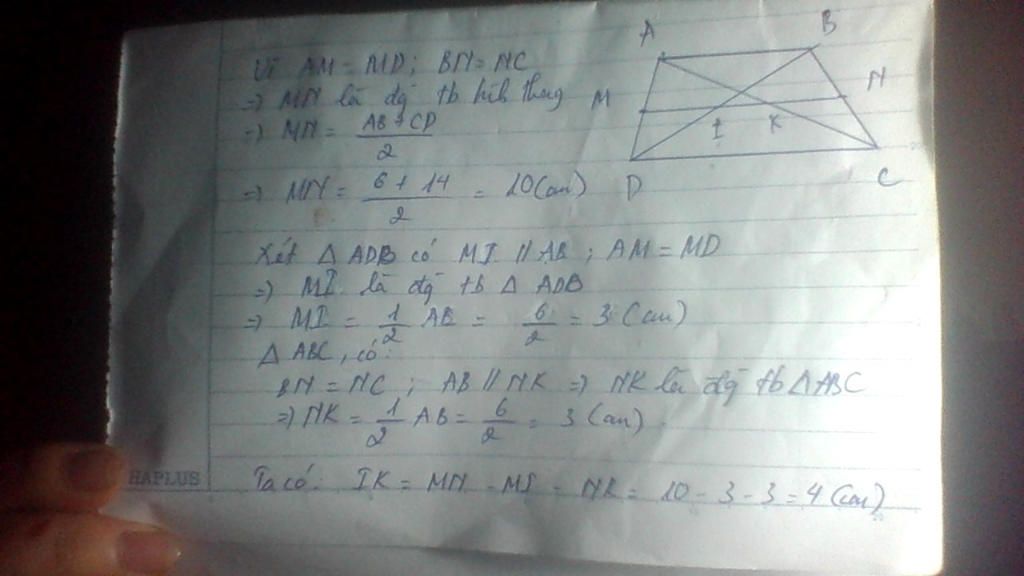 A
B
M
N
I
K
D
C
Vì AM = MD; BN = NC
=> MN là đg tb hìh thag
=> MN = \frac{AB + CD}{2}
=> MN = \frac{6 + 14}{2} = 10 (cm)
Xét Δ ADB có MI // AB; AM = MD
=> MI là đg tb Δ ADB
=> MI = \frac{1}{2} AB = \frac{6}{2} = 3 (cm)
Δ ABC, có:
BN = NC; AB // NK => NK là đg tb Δ ABC
=> NK = \frac{1}{2} AB = \frac{6}{2} = 3 (cm).
Ta có: IK = MN - MI - NK = 10 - 3 - 3 = 4 (cm)
HAPLUS